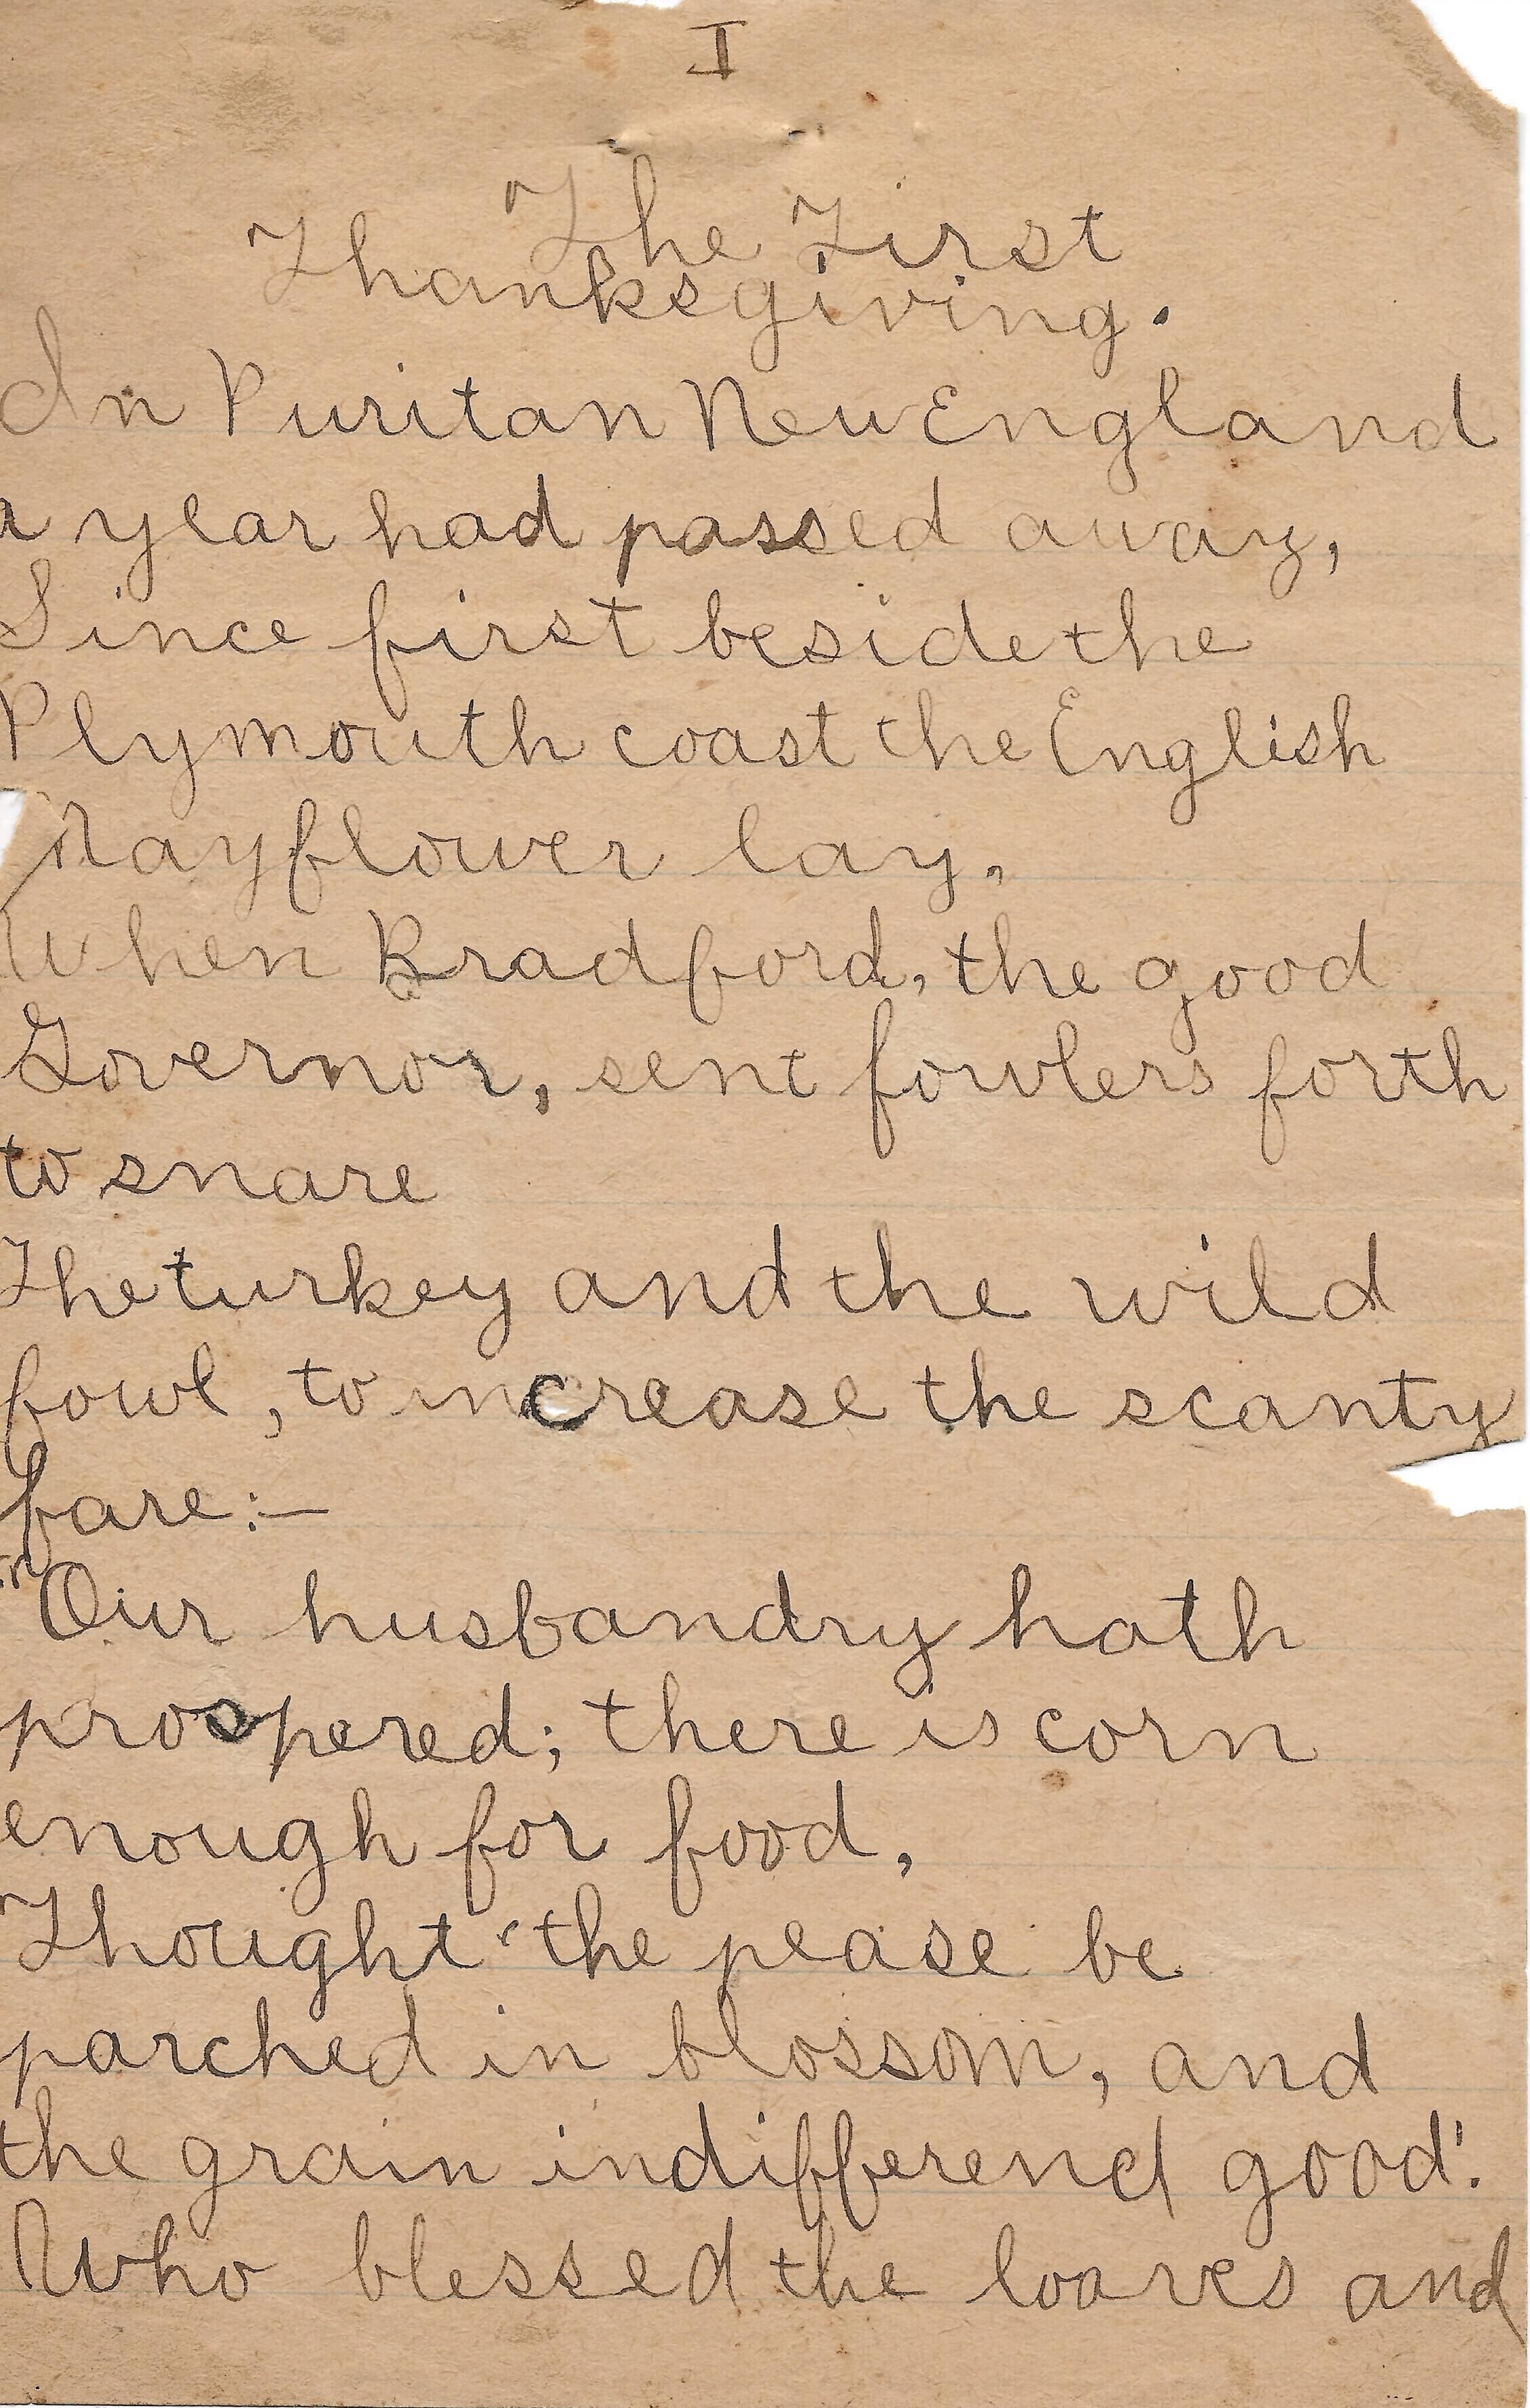 I
The First
Thanksgiving.
In Puritan New England
a year had passed away,
Since first beside the
Plymouth coast the English
Mayflower lay,
When Bradford, the good
Governor, sent fowlers forth
to snare
The turkey and the wild
fowl, to increase the scanty
fare:—
"Our husbandry hath
prospered; there is corn
enough for food,
Thought the pease be
parched in blossom, and
the grain indifferend good.'
Who blessed the loaves and